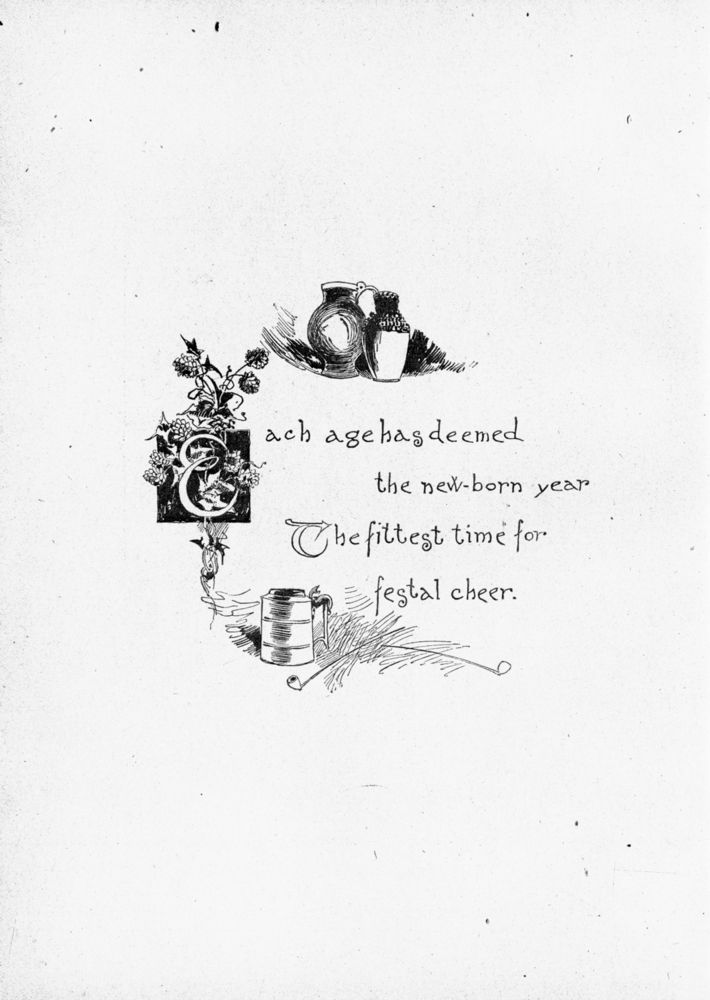 Each age has deemed
the new-born year
The fittest time for
festal cheer.